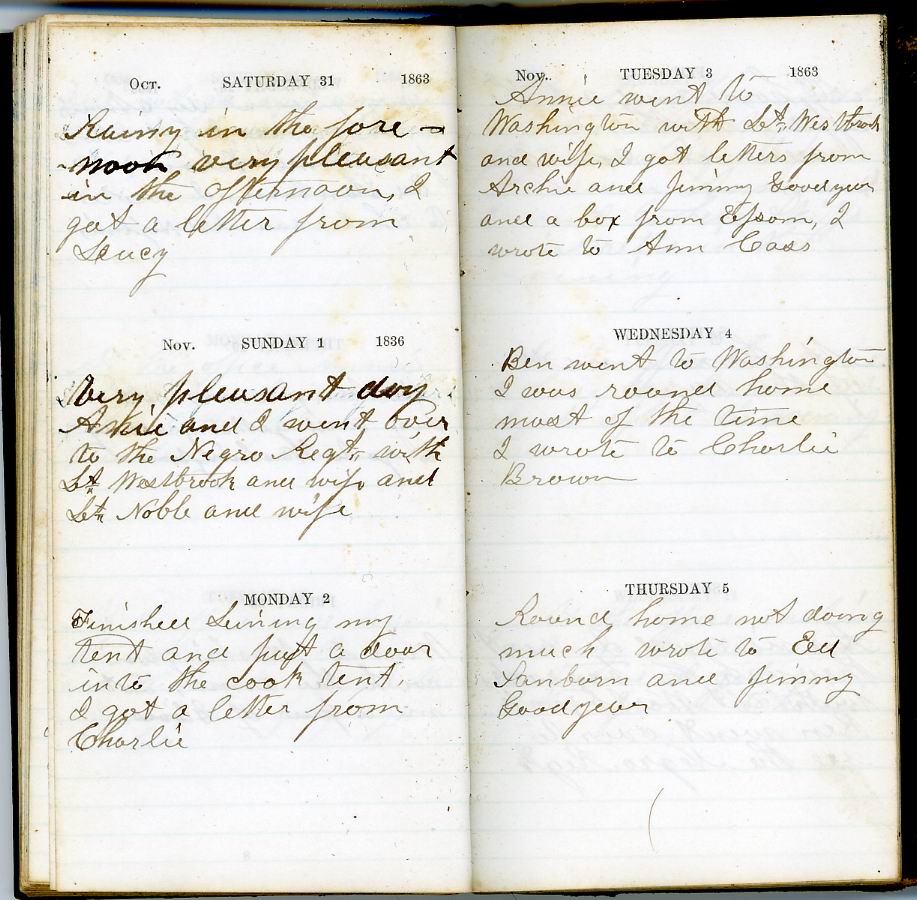 Oct. SATURDAY 31 1863
Rainy in the fore-
noon very pleasant
in the afternoon, I
got a letter from
Lucy
Nov. SUNDAY 1 1836
Very pleasant day
Annie and I went over
to the Negro Regt, with
Lt Westbrook and wife and
Lt Noble and wife
MONDAY 2
Finished Lining my
tent and put a door
into the cook tent,
I got a letter from
Charlie
Nov. TUESDAY 3 1863
Annie went to
Washington with Lt, Westbrook
and wife, I got letters from
Archie and Jimmy Goodyear
and a box from Epsom, I
wrote to Ann Cass
WEDNESDAY 4
Ben went to Washington
I was round home
most of the time
I wrote to Charlie
Brown
THURSDAY 5
Round home not doing
much wrote to Ed
Sanborn and Jimmy
Goodyear